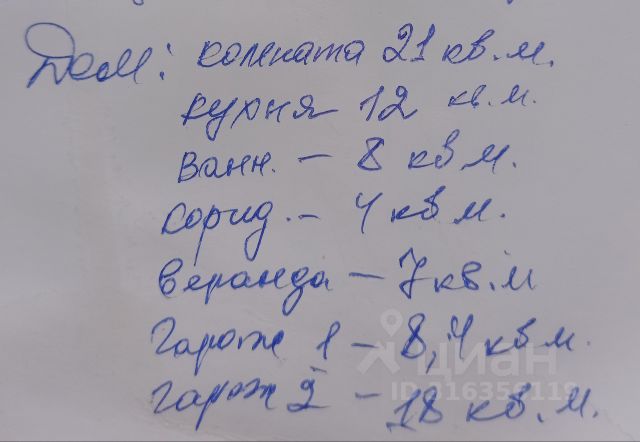 Дом: комната 21 кв.м.
кухня 12 кв.м.
ванн. - 8 кв м.
корид. - 4 кв м.
веранда - 7 кв.м
гараж 1 - 8,4 кв м.
гараж 2 - 18 кв.м.
циан